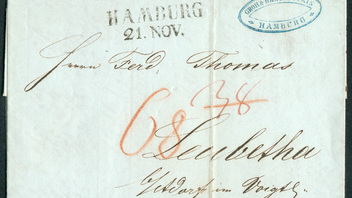 HAMBURG
21. NOV.
HAMBURG
Herrn Ferd. Thomas
68
38
Leubetha
im Voigtl.